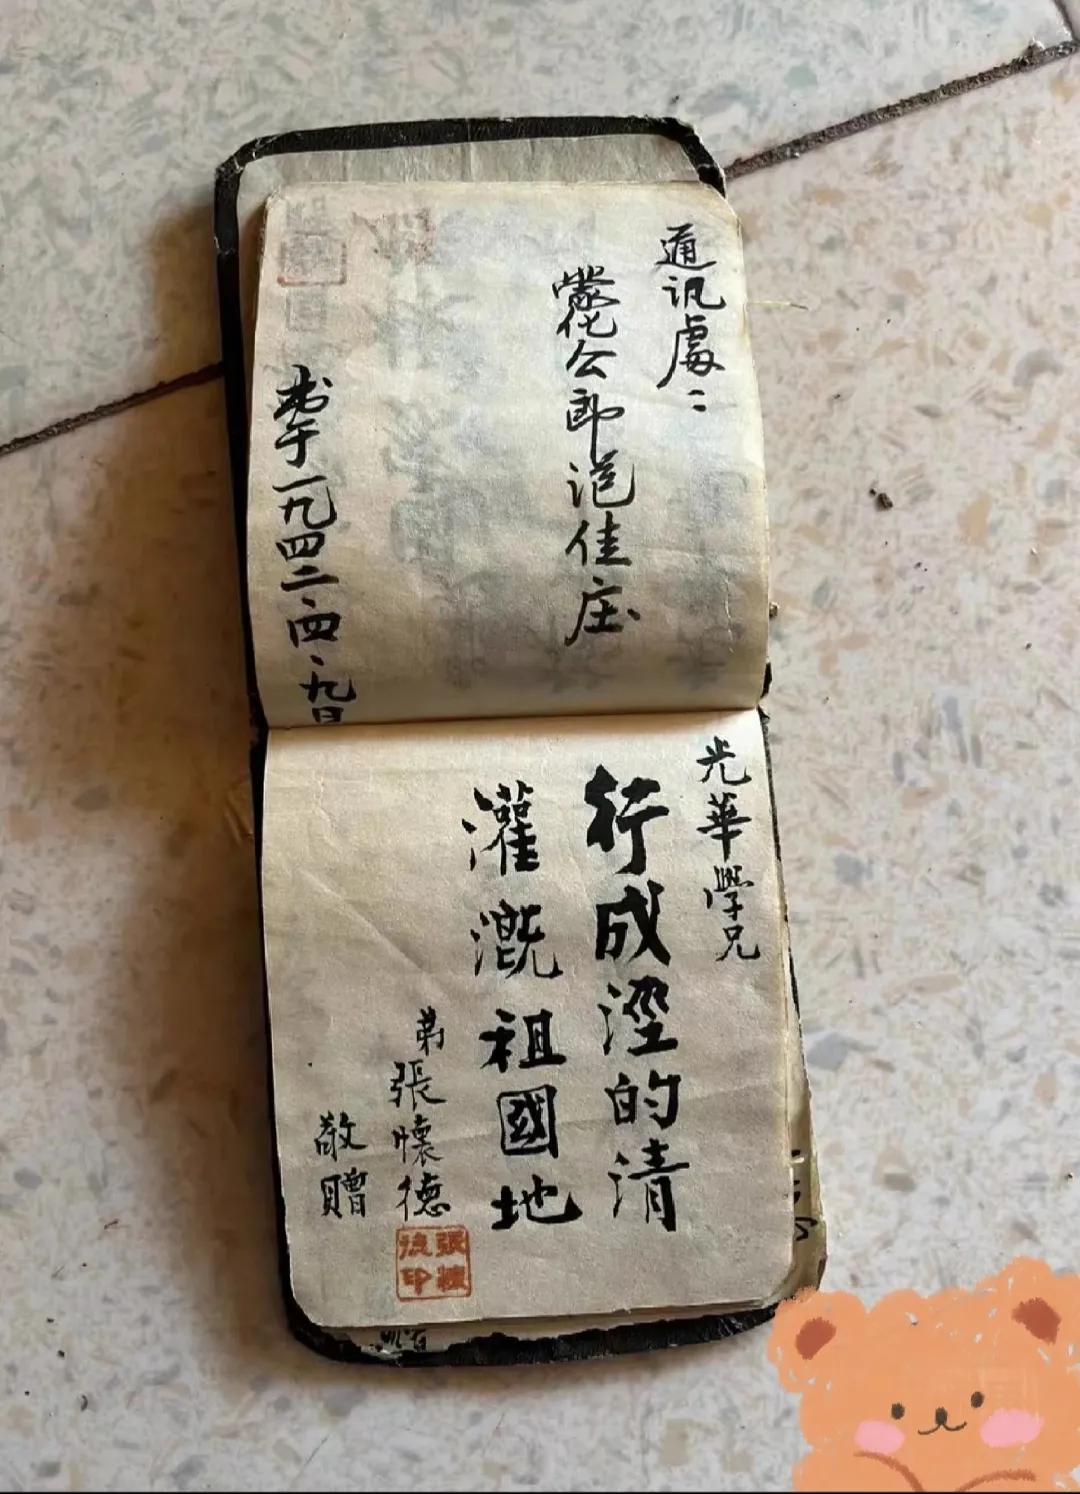 通訊處：
蒙化公郎范佳庄
弟于一九四二、四、九日
光華學兄
行成涇的清
灌溉祖國地
弟張懷德
敬贈
張懷德印